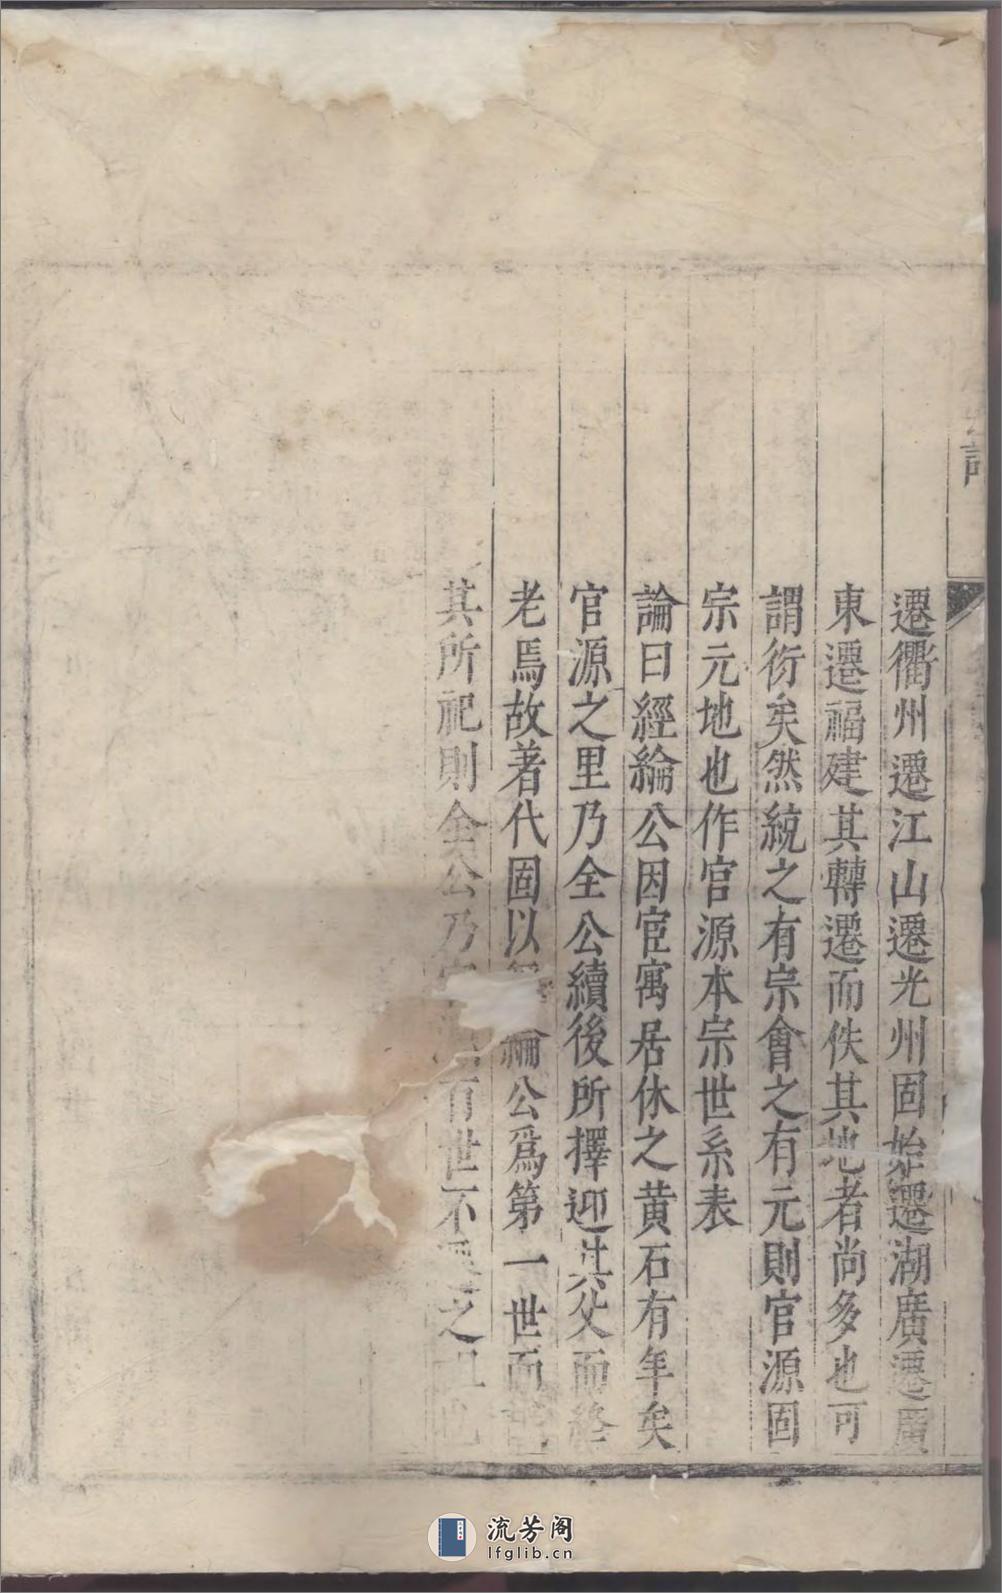 遷衢州遷江山遷光州固始遷湖廣遷廣
東遷福建其轉遷而佚其地者尚多也可
謂衍矣然統之有宗會之有元則官源固
宗元地也作官源本宗世系表
論曰經綸公因宦寓居休之黄石有年矣
官源之里乃全公續後所擇迎其父而終
老焉故著代固以綸公爲第一世而
其所祀則全公乃百世不之
流芳阁
lfglib.cn